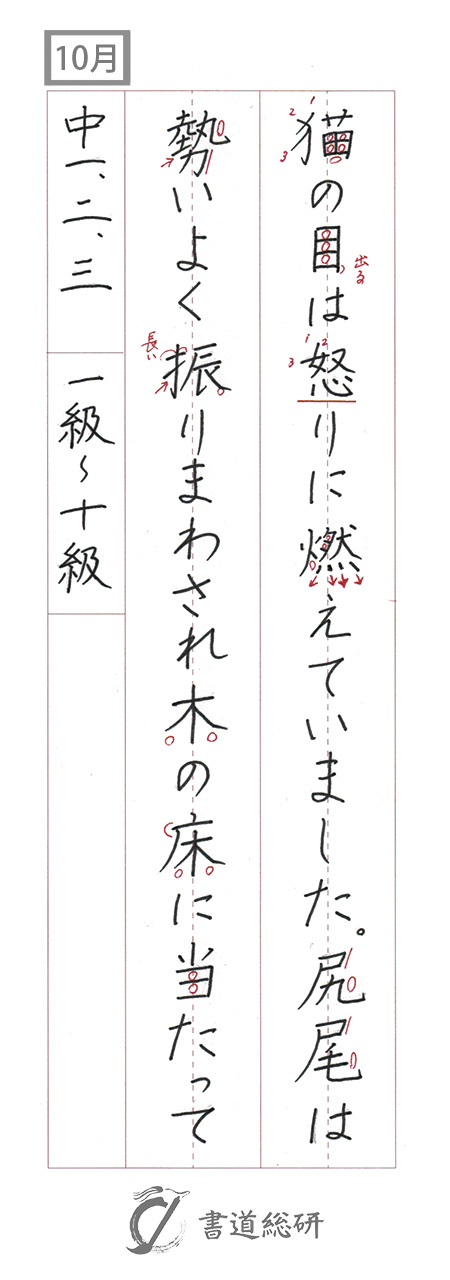 10月
猫の目は怒りに燃えていました。尻尾は
勢いよく振りまわされ木の床に当たって
中一、二、三 一級〜十級
1
2
3
出る
1 2
3
長い
書道総研